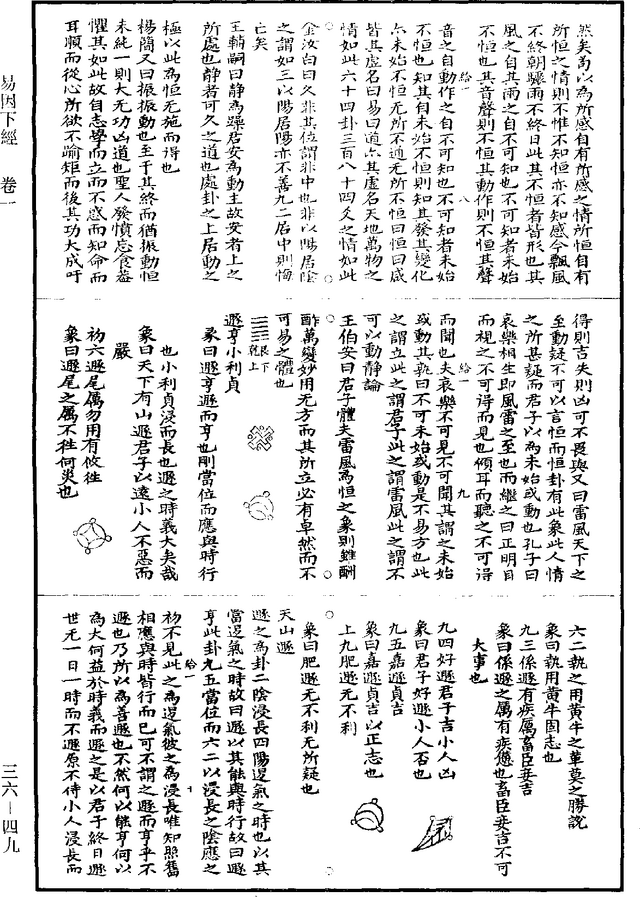 易因下經　卷一
三六—四九
然矣苟以為所感自有所感之情所恒自有
所恒之情則不惟不知恒亦不知感今飄風
不終朝驟雨不終日此其不恒者皆形也其
風之自其雨之自不可知也不可知者未始
不恒也其音聲則不恒其動作則不恒其聲
音之自動作之自不可知也不可知者未始
不恒也知其自未始不恒則知其發其變化
亦未始不恒无所不通无所不恒曰恒曰咸
皆其虛名曰易曰道亦其虛名天地萬物之
情如此六十四卦三百八十四爻之情如此
金汝白曰久非其位謂非中也非以陽居陰
之謂如三以陽居陽亦不善九二居中則悔
亡矣
王輔嗣曰靜為躁君安為動主故安者上之
所處也靜者可久之道也處卦之上居動之
極以此為恒无施而得也
楊簡又曰振振動也至于其終而猶振動恒
未純一則大无功凶道也聖人發憤忘食蓋
懼其如此故自志學而立而不惑而知命而
耳順而從心所欲不踰矩而後其功大成吁
得則吉失則凶可不畏與又曰雷風天下之
至動疑不可以言恒而恒卦有此象此人情
之所甚疑而君子以為未始或動也孔子曰
哀樂相生即風雷之至也而繼之曰正明目
而視之不可得而見也傾耳而聽之不可得
而聞也夫哀樂不可見不可聞其謂之未始
或動其孰曰不可未始或動是不易方也此
之謂立此之謂君子此之謂雷風此之謂不
可以動靜論
王伯安曰君子體夫雷風為恒之象則雖酬
酢萬變妙用无方而其所立必有卓然而不
可易之體也
艮下
乾上
遯亨小利貞
彖曰遯亨遯而亨也剛當位而應與時行
也小利貞浸而長也遯之時義大矣哉
象曰天下有山遯君子以遠小人不惡而
嚴
初六遯尾厲勿用有攸往
象曰遯尾之厲不往何災也
六二執之用黃牛之革莫之勝說
象曰執用黃牛固志也
九三係遯有疾厲畜臣妾吉
象曰係遯之厲有疾憊也畜臣妾吉不可
大事也
九四好遯君子吉小人凶
象曰君子好遯小人否也
九五嘉遯貞吉
象曰嘉遯貞吉以正志也
上九肥遯无不利
象曰肥遯无不利无所疑也
天山遯
遯之為卦二陰浸長四陽遯氣之時也以其
當遯氣之時故曰遯以其能與時行故曰遯
亨此卦九五當位而六二以浸長之陰應之
初不見此之為遯氣彼之為浸長唯知照舊
相應與時皆行而已可不謂之遯而亨乎不
遯也乃所以為善遯也不然何以能亨何以
為大何益於時義而遯之是以君子終日遯
世无一日一時而不遯原不待小人浸長而